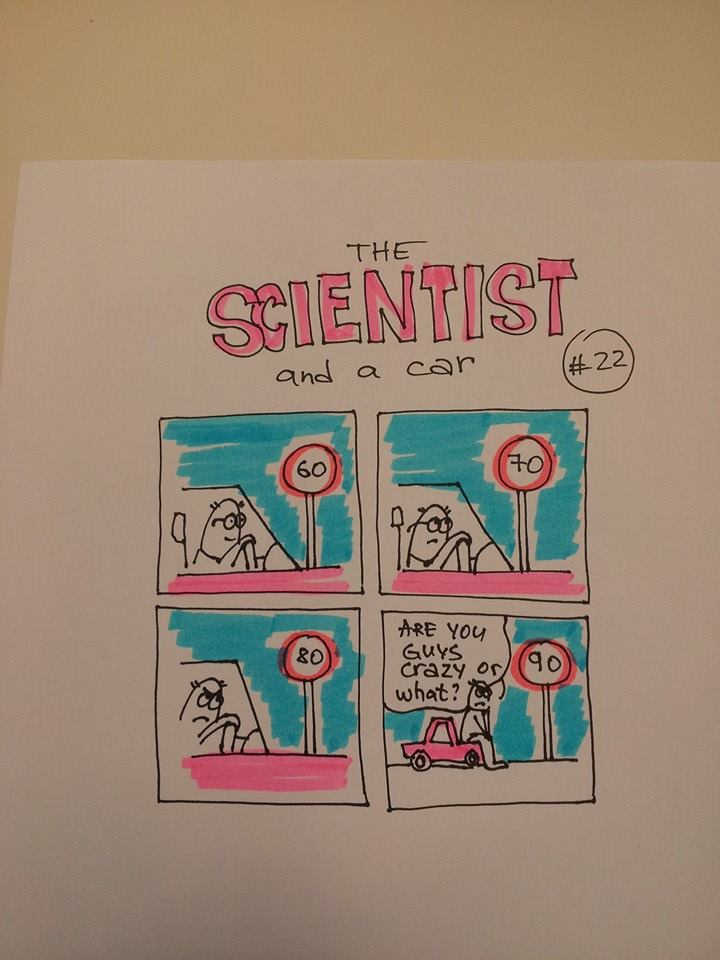 THE
SCIENTIST
and a car
#22
60
70
80
ARE YOU
GUYS
crazy or
what?
90